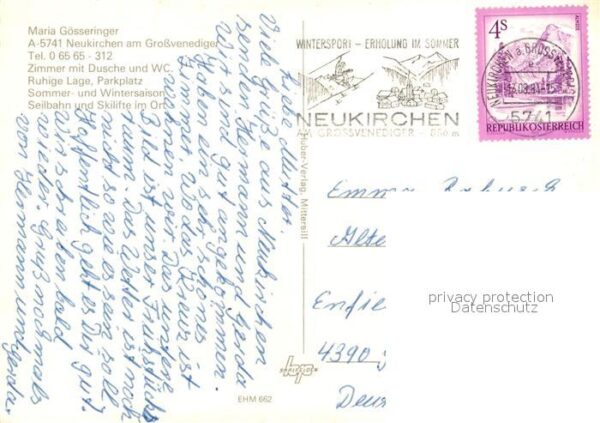 Maria Gösseringer
A-5741 Neukirchen am Großvenediger
Tel. 0 65 65 - 312
Zimmer mit Dusche und WC
Ruhige Lage, Parkplatz
Sommer- und Wintersaison
Seilbahn und Skilifte im Ort
WINTERSPORT - ERHOLUNG IM SOMMER
NEUKIRCHEN
AM GROSSVENEDIGER - 856 m
4S
ALMSEE
REPUBLIK ÖSTERREICH
NEUKIRCHEN a. GROSSVENEDIGER
5741
Liebe Mutter.
Viele Grüße aus Neukirchen
senden Hermann und Gerda
Wir sind gut angekommen.
Haben ein sehr schönes
Zimmer. Wo das Kreuz ist
wohnen wir. Das untere
Bild ist unser Frühstücks
raum. Das Wetter ist noch
nicht so wie es sein soll.
Hoffentlich geht es Dir gut.
Wir schreiben bald
wieder. Gruß nochmals
von Hermann und Gerda.
Huber-Verlag, Mittersill
EHM 662
Emma
Alte
Enfie
4390
Deus
privacy protection
Datenschutz